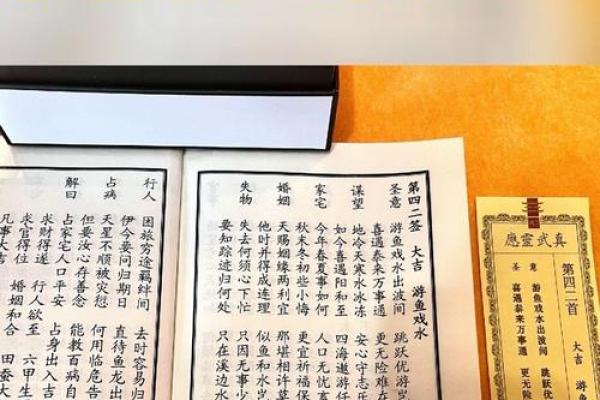 第四二签 大吉 游鱼戏水
圣意 游鱼戏水出波间 跳跃优游岂
喜遇泰来万事通 更无险难在
谋望 地冷天寒水冰冻 安心守志乐
如今喜遇阳和至 四海遨游任
家宅 今年春夏事如何 人口无忧富
秋末冬初些小悔 更宜祈福保
婚姻 天赐姻缘两利宜 那堪相许莫
他时并得成连理 似鱼和水岂
失物 失去何须心下忙 只因无事少
要知踪迹归何处 只在溪边水
行人 困旅穷途羁绊间 去时容易归
伊今要问归期日 直待鱼龙出
占病 天星不顺被灾愆 何用临危告
但要汝心存善念 能教百病自
解曰 占家宅人口平安 占身出入吉
求财得遂 行人欲至 六甲生
求官得位 婚姻和合 田蚕大
凡事大吉
真武靈應
第四二首 大吉 游鱼
圣意 游鱼戏水出波间 跳跃优
喜遇泰来万事通 更无险